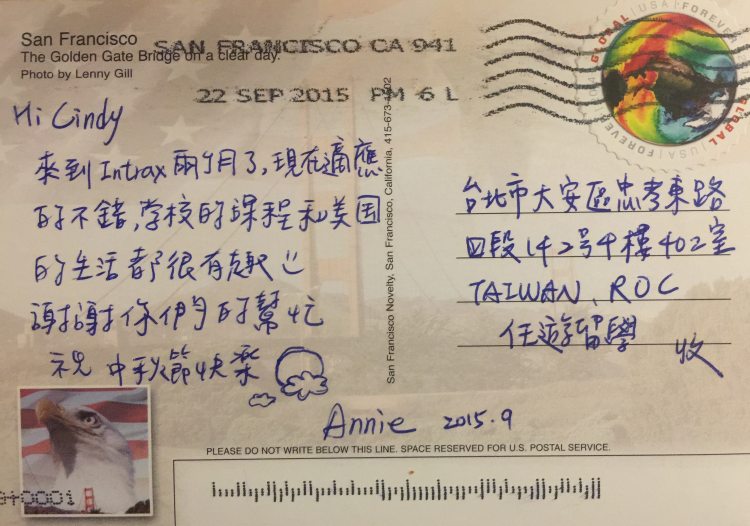 San Francisco
The Golden Gate Bridge on a clear day.
Photo by Lenny Gill
SAN FRANCISCO CA 941
22 SEP 2015 PM 6 L
GLOBAL | USA | FOREVER
GLOBAL | USA | FOREVER
Hi Cindy
來到Intrax兩个月了,現在適應
的不錯,学校的課程和美国
的生活都很有趣
謝謝你們的幫忙
祝 中秋節快樂
Annie 2015.9
San Francisco Novelty, San Francisco, California, 415-673-
台北市大安區忠孝東路
四段142号4樓402室
TAIWAN, ROC
任遊留學 收
PLEASE DO NOT WRITE BELOW THIS LINE. SPACE RESERVED FOR U.S. POSTAL SERVICE.